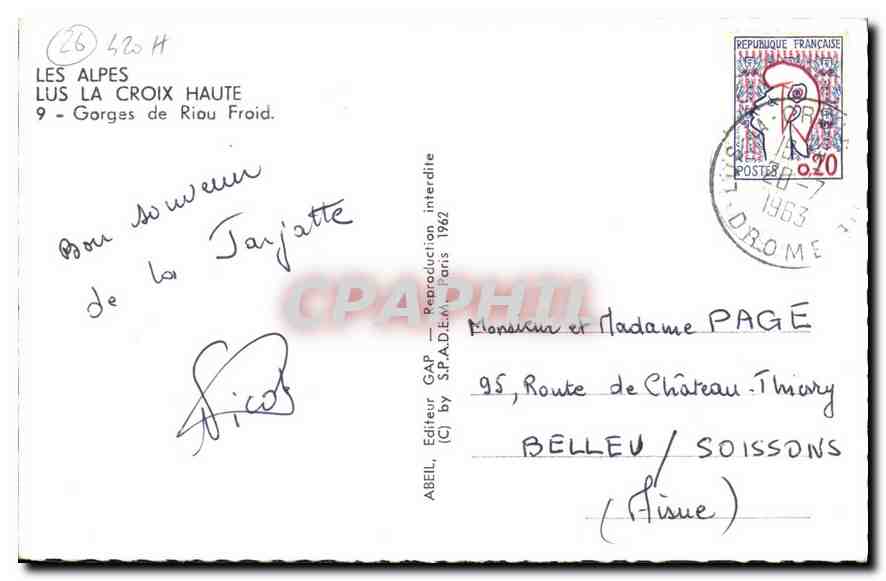 26 420 H
LES ALPES
LUS LA CROIX HAUTE
9 - Gorges de Riou Froid.
Bon souvenir
de la Jarjatte
Nicole
ABEIL, Editeur GAP — Reproduction interdite
(C) by S.P.A.D.E.M. Paris 1962
REPUBLIQUE FRANÇAISE
POSTES 0,20
LUS-LA-CROIX
28-7
1963
DROME
CPAPHIL
Monsieur et Madame PAGE
95, Route de Château-Thierry
BELLEU / SOISSONS
(Aisne)